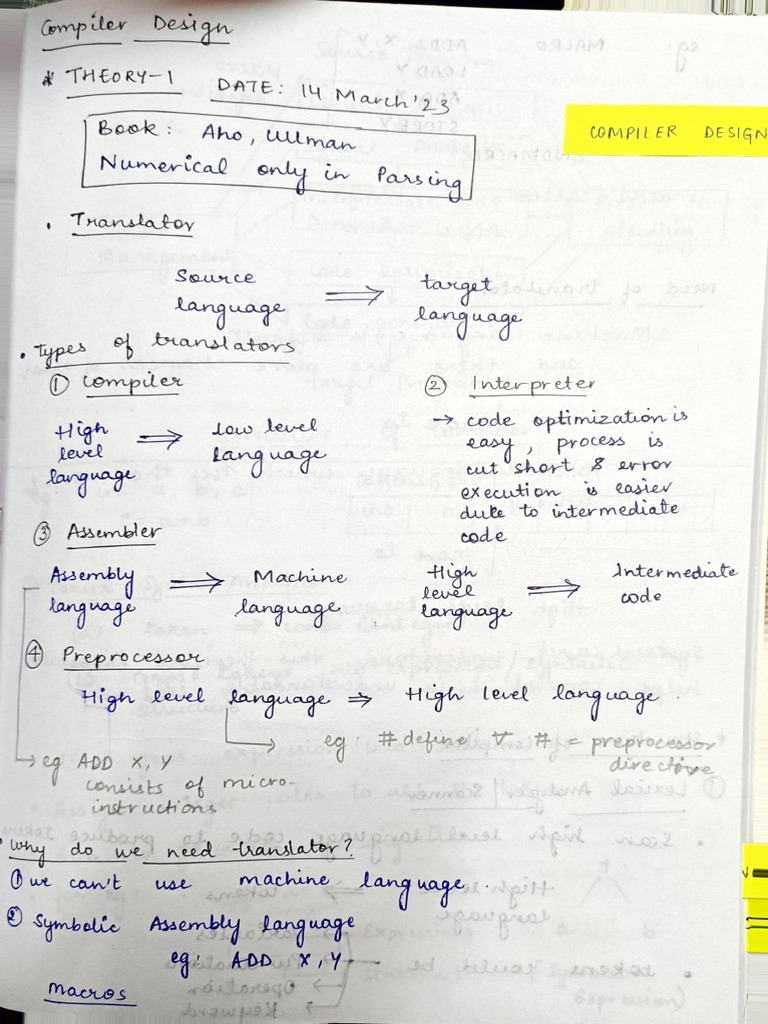 Compiler Design
* THEORY-1 DATE: 14 March'23
COMPILER DESIGN
Book: Aho, Ullman
Numerical only in Parsing
• Translator
Source language ⇒ target language
• Types of translators
① Compiler
High level language ⇒ low level language
② Interpreter
→ code optimization is
easy, process is
cut short & error
execution is easier
duke to intermediate
code
High level language ⇒ Intermediate code
③ Assembler
Assembly language ⇒ Machine language
④ Preprocessor
High level language ⇒ High level language.
eg: #define # = preprocessor
directive
eg ADD X, Y
consists of micro-
instructions
• Why do we need translator?
① we can't use machine language.
② Symbolic Assembly language
eg: ADD X, Y
macros